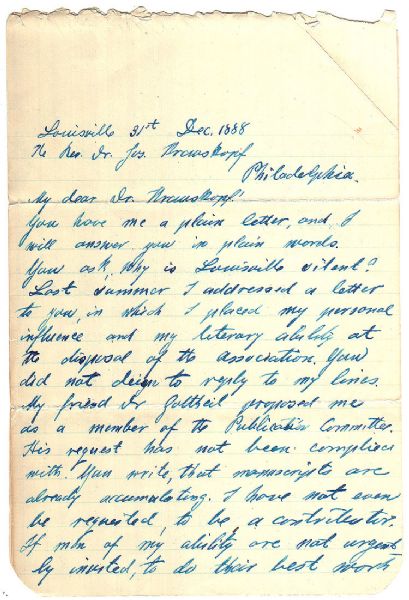 Louisville 31st Dec. 1888
The Rev. Dr. Jos. Krauskopf
Philadelphia.
My dear Dr. Krauskopf!
You have me a plain letter, and I
will answer you in plain words.
You ask, Why is Louisville silent?
Last summer I addressed a letter
to you, in which I placed my personal
influence and my literary ability at
the disposal of the association. You
did not deign to reply to my lines.
My friend Dr Gottheil proposed me
as a member of the Publication Committee.
His request has not been complied
with. You write, that manuscripts are
already accumulating. I have not even
be requested, to be a contributor.
If men of my ability are not urgent
ly invited, to do their best work